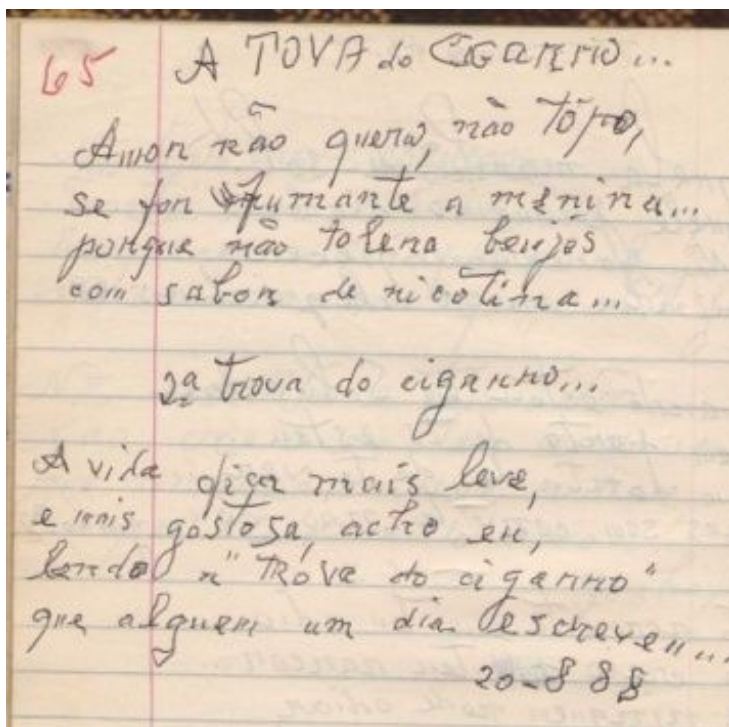 65
A TOVA do CIGARRO...
Amor não quero, não tôpo,
se for fumante a menina...
porque não tolero beijos
com sabor de nicotina...
2ª trova do cigarro...
A vida fica mais leve,
e mais gostosa, acho eu,
lendo a "trova do cigarro"
que alguem um dia escreveu...
20-8 88